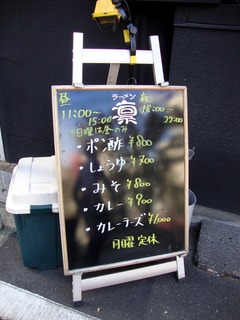 ラーメン
凛
昼
11:00〜
15:00
夜
18:00〜
22:00
日曜は昼のみ
・ポン酢 ¥800
・しょうゆ ¥700
・みそ ¥800
・カレー ¥900
・カレーチーズ ¥1,000
月曜定休